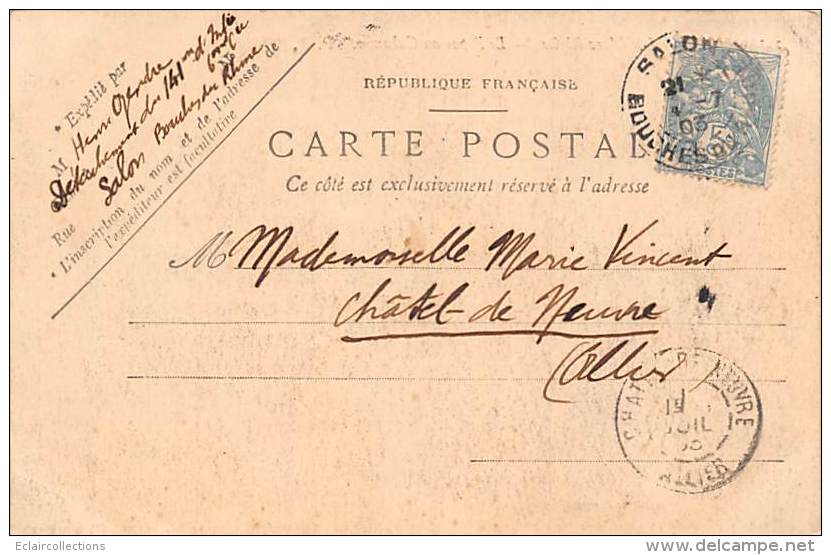 * Expédié par
M Henri
Détachement du 141ème d'Infie
Salon Bouches du Rhône
Rue
* L'inscription du nom et de l'adresse de
l'expéditeur est facultative
RÉPUBLIQUE FRANÇAISE
CARTE POSTALE
Ce côté est exclusivement réservé à l'adresse
SALON
21
-7
03
BOUCHES DU
POSTES
M Mademoiselle Marie Vincent
Châtel-de Neuvre
(Allier)
CHATEL DE NEUVRE
JUIL
03
ALLIER
Eclaircollections
www.delcampe.net